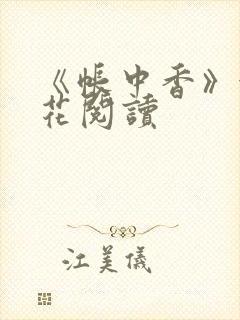 《帳中香》
花閱讀
江美儀